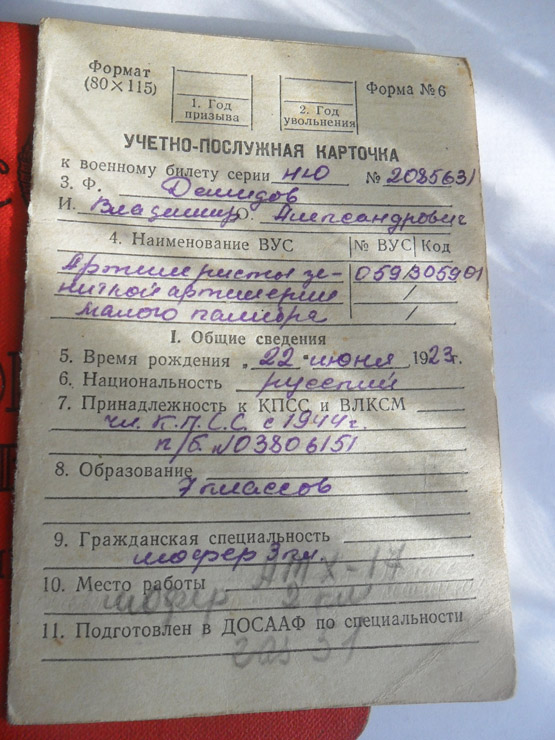 Формат
(80×115)
1. Год
призыва
2. Год
увольнения
Форма № 6
УЧЕТНО-ПОСЛУЖНАЯ КАРТОЧКА
к военному билету серии НЮ № 2085631
3. Ф. Демидов
И. Владимир О. Александрович
4. Наименование ВУС № ВУС Код
Артиллеристы зе-
нитной артиллерии
малого калибра
I. Общие сведения
5. Время рождения „22" июня 1923 г.
6. Национальность русский
7. Принадлежность к КПСС и ВЛКСМ
чл. К.П.С.С. с 1944 г.
п/б. №03806151
8. Образование
7 классов
9. Гражданская специальность
шофер 3 кл.
10. Место работы АТХ-17
шофер 2 кл
11. Подготовлен в ДОСААФ по специальности
газ 51